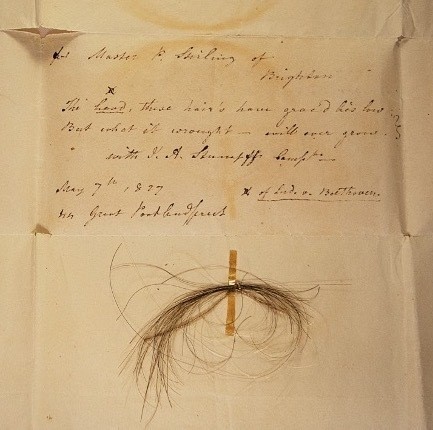 for Master P. Stirling of
Brighton
x
The head, these hair's have grac'd lies low
But what it wrought – will ever grow.
with J. A. Stumpff Comp.ts
May 7th 1827
Great Portland Street
x of Lud. v. Beethoven.